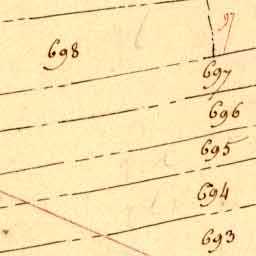 97
698
697
696
695
694
693